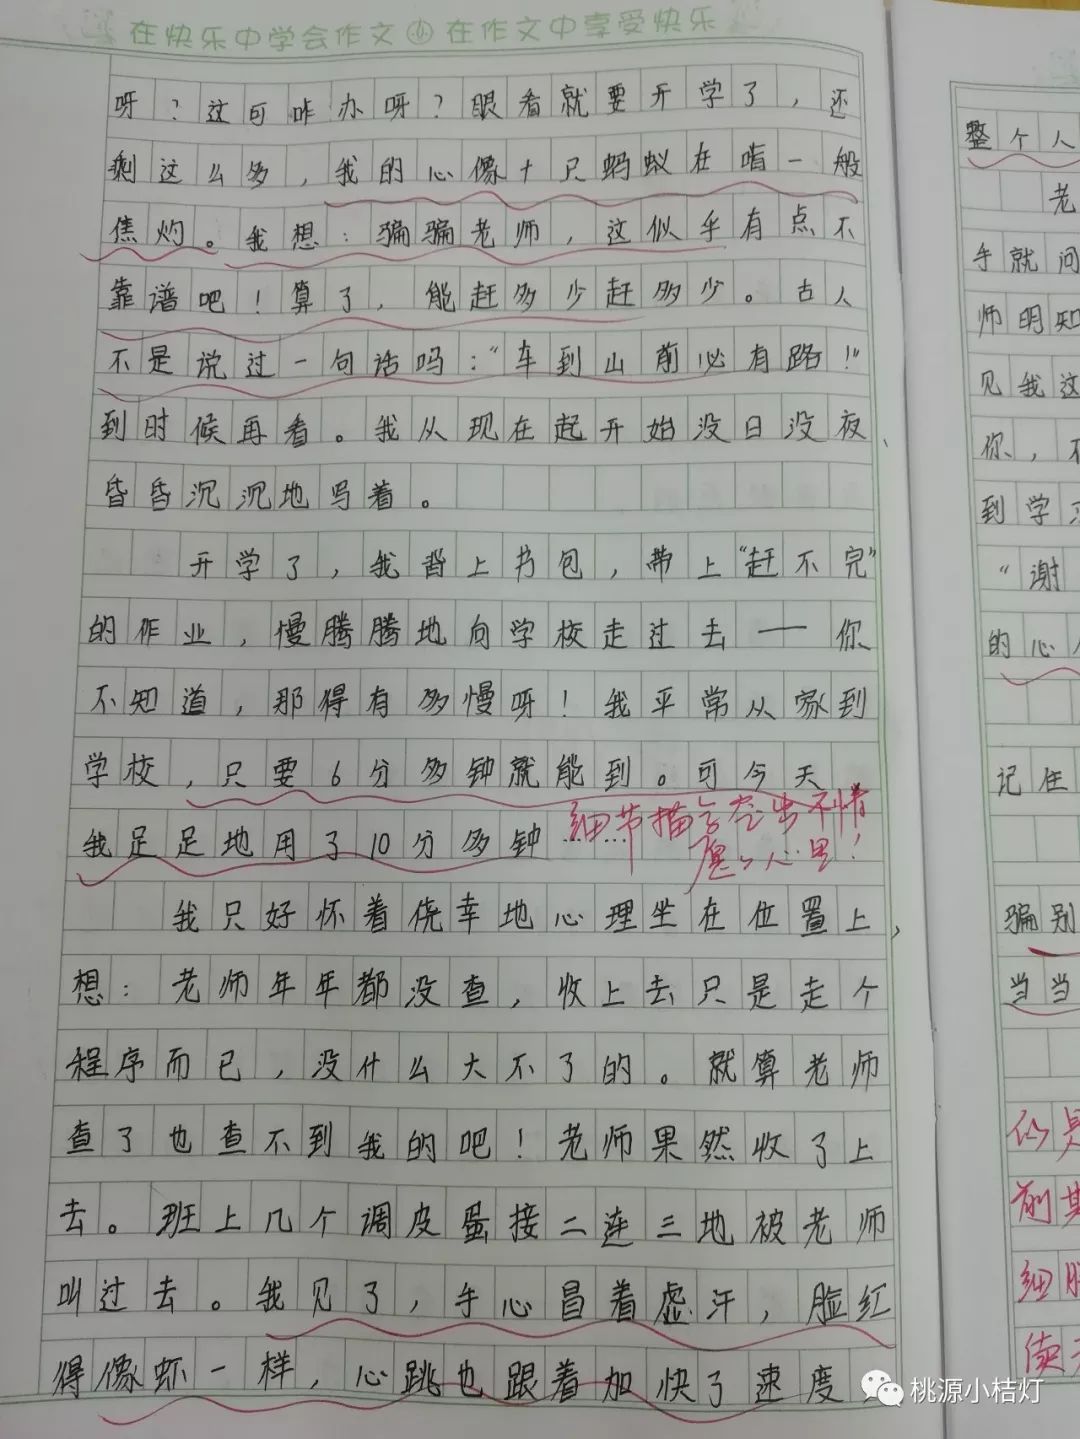 在快乐中学会作文 在作文中享受快乐
呀？这可咋办呀？眼看就要开学了，还
剩这么多，我的心像十只蚂蚁在啃一般
焦灼。我想：骗骗老师，这似乎有点不
靠谱吧！算了，能赶多少赶多少。古人
不是说过一句话吗：“车到山前必有路！”
到时候再看。我从现在起开始没日没夜、
昏昏沉沉地写着。
开学了，我背上书包，带上“赶不完”
的作业，慢腾腾地向学校走过去——你
不知道，那得有多慢呀！我平常从家到
学校，只要6分多钟就能到。可今天
我足足地用了10分多钟……
细节描写突出不情
愿的心里！
我只好怀着侥幸地心理坐在位置上，
想：老师年年都没查，收上去只是走个
程序而已，没什么大不了的。就算老师
查了也查不到我的吧！老师果然收了上
去。班上几个调皮蛋接二连三地被老师
叫过去。我见了，手心冒着虚汗，脸红
得像虾一样，心跳也跟着加快了速度
整个人
老
手就问
师明知
见我这
你，不
到学习
“谢
的心
记住
骗别
当当
前其
细
读
桃源小桔灯